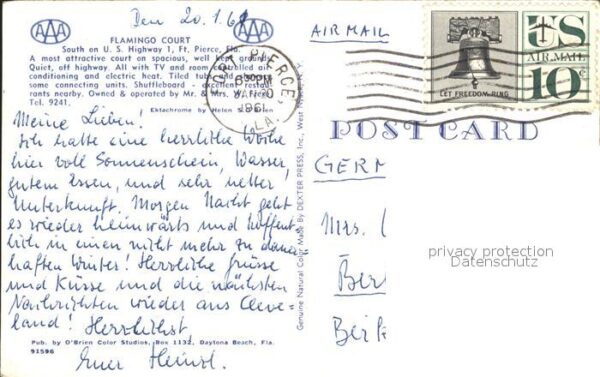 Den 20.1.61
AAA
AAA
FLAMINGO COURT
South on U. S. Highway 1, Ft. Pierce, Fla.
A most attractive court on spacious, well kept grounds.
Quiet, off highway. All with TV and room controlled air-
conditioning and electric heat. Tiled tubs and
some connecting units. Shuffleboard - excellent restau-
rants nearby. Owned or operated by Mr. & Mrs.
Tel. 9241.
Ektachrome by Helen
Meine Lieben!
Ich hatte eine herrliche Woche
hier voll Sonnenschein, Wasser,
gutem Essen, und sehr netter
Unterkunft. Morgen Nacht geht
es wieder heimwärts und hoffent-
lich in einen nicht mehr zu dauer-
haften Winter! Herrliche Grüsse
und Küsse und die nächsten
Nachrichten wieder aus Cleve-
land! Herzlichst
Euer Heinzl.
Pub. by O'Brien Color Studios, Box 1132, Daytona Beach, Fla.
91596
Genuine Natural Color Made BY DEXTER PRESS, Inc., West Nyack, N. Y.
FORT PIERCE,
630 PM
JAN 20
1961
FLA.
AIR MAIL
LET FREEDOM RING
US
AIR MAIL
10c
POST CARD
GERM
Mrs.
Ber
privacy protection
Datenschutz